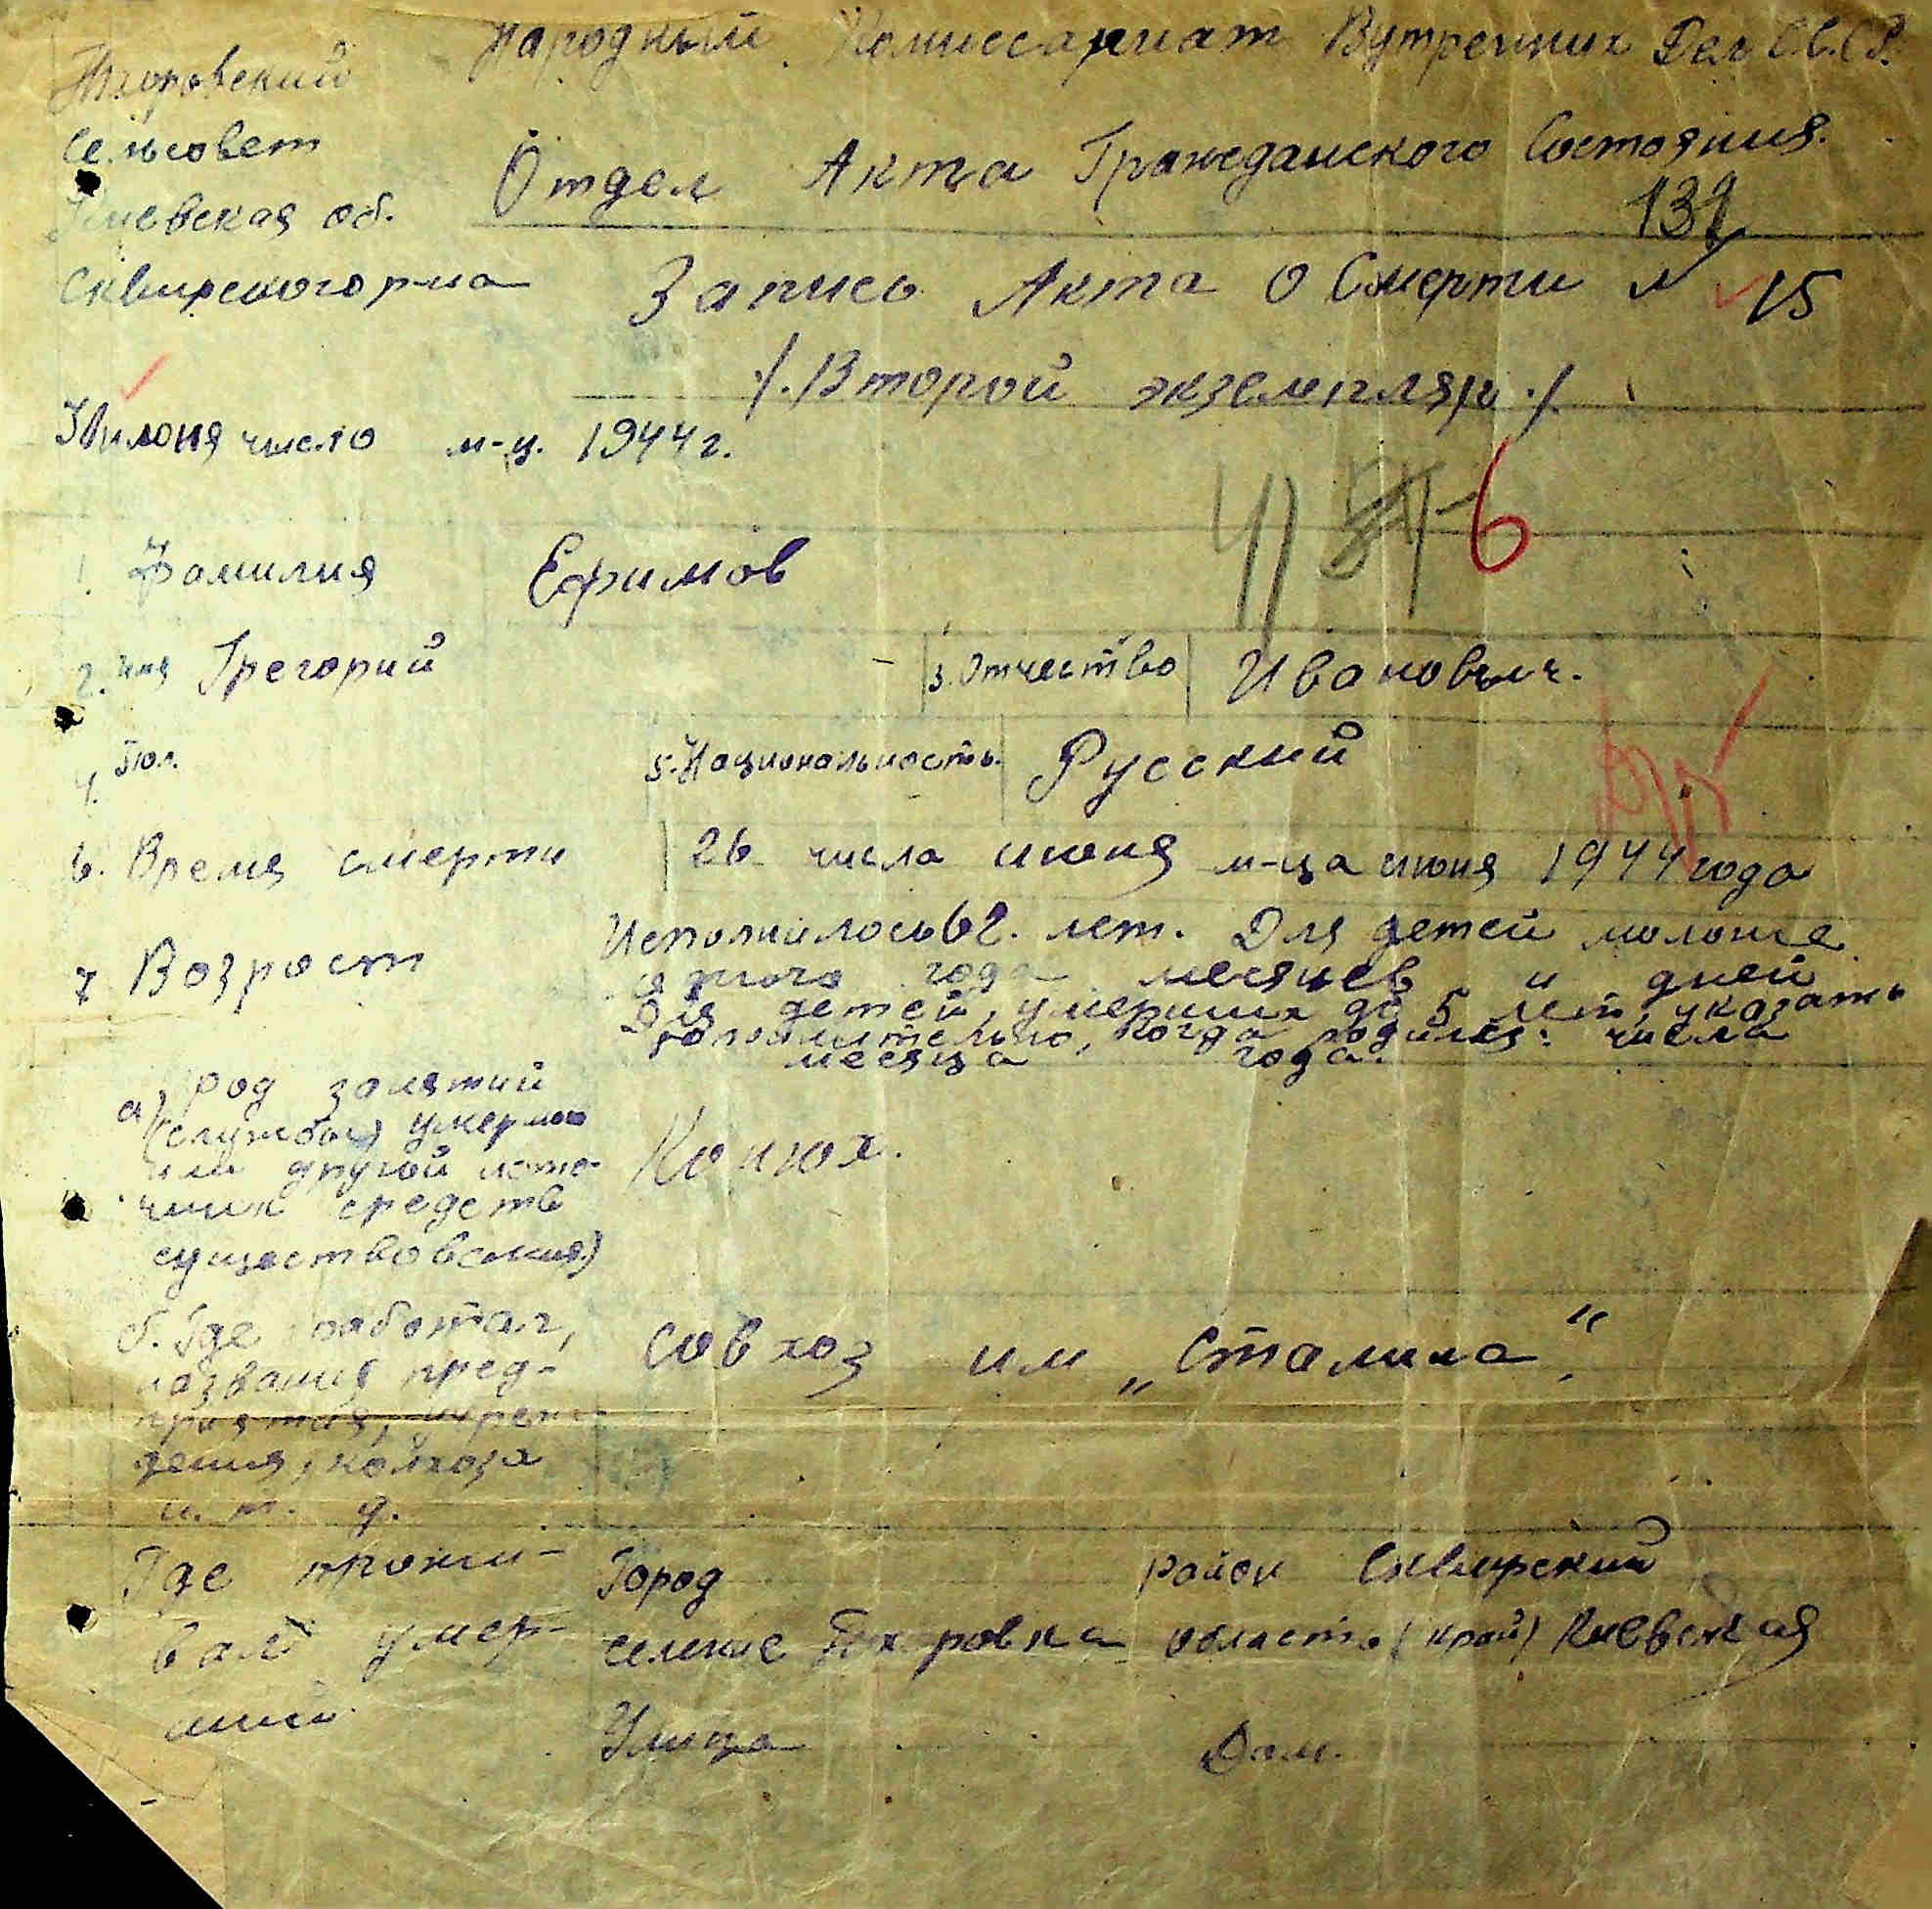 Народный Комиссариат Вутренних Дел С.С.С.Р.
сельсовет
Киевская об.
Сквирского р-на
Отдел Акта Гражданского Состояния.
139
Запись Акта О Смерти N 15
/. Второй экземпляр ./
число м-ц. 1944 г.
6
1. Фамилия Ефимов
2. Имя Грегорий 3. Отчество Ивановыч.
4. Пол. 5. Национальность. Русский
6. Время смерти 26 числа июня м-ца июня 1944 года
7 Возраст Исполнилось 62. лет. Для детей моложе
одного года месяцев и дней
Для детей, умерших до 5 лет, указать
дополнительно, когда родился: числа
месяца года.
а) Род занятий
(службы) умершо
или другой исто-
чник средств
существования)
Конюх.
б. Где работал,
названия пред-
приятия, учреж-
дения, колхоза
и. т. д.
совхоз им „Сталина".
Где прожи-
вал умер-
ший.
Город район Сквирский
селение область (край) Киевская
Улица Дом.